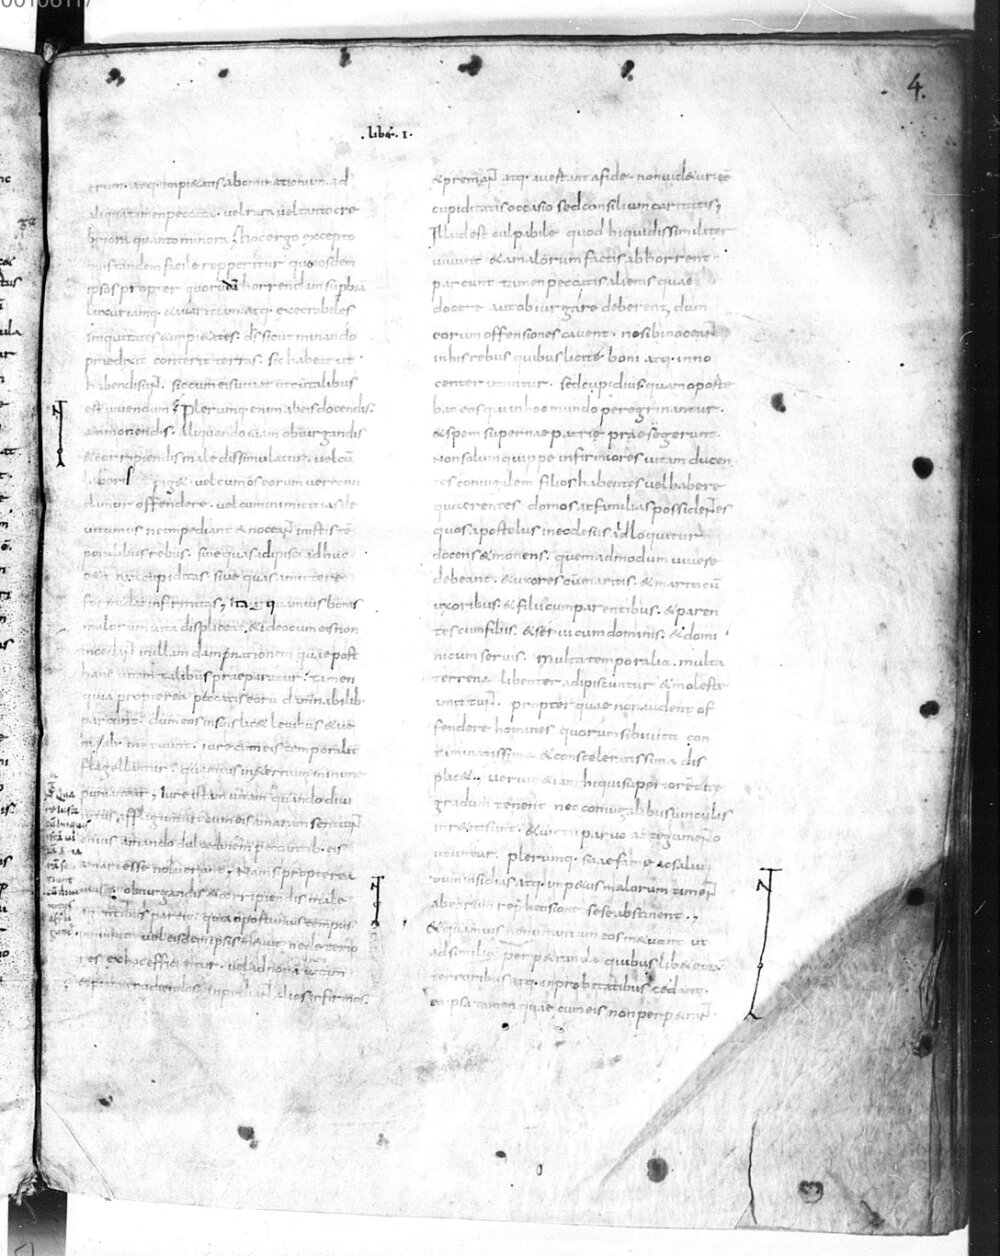 4.
.liber.I.
erum. atq. impietatis abominationum. ad
aliqua tamen peccata. vel rara vel tanto cre
briora quanto minora; hoc ergo excepto
quis tandem facile repperitur qui eosdem
ipsos propter quorum horrendam supbia
luxuriamq. & avaritiam atq. execrabiles
iniquitates & impietates. ds sicut minando
praedixit conterit terras. sic habeat ut
habendi sunt. sic cum eis vivat ut cum talibus
est vivendum; Plerumq. enim ab eis docendis.
ammonendis. aliquando etiam obiurgandis
& corripiendis male dissimulatur. vel cu
laboris piget. vel cum os eorum verecun
damur offendere. vel cum inimicitias de
vitamus ne impediant & noceant in istis te
poralibus rebus. sive quas adipisci adhuc
cupiditas. sive quas amittere
formidat infirmitas; Itaq. quamvis bonis
malorum vita displiceat. & ideo cum eis non
incidant in illam damnationem quae post
hanc vitam talibus praeparatur. tamen
quia propterea peccatis eoru damnabilib.
parcunt. dum eos in suis licet levibus & ve
nialib. metuunt. iure cum eis temporalit
flagellantur. quamvis in aeternum minime
puniantur; Iure istam vitam quando divi
nitus affliguntur cum eis amaram sentiunt
cuius amando dulcedinem peccantib. eis
amari esse noluerunt; Nam si propterea
quisq. obiurgandis & corripiendis male
agentibus parcit. quia oportunius tempus
inquirit. vel eisdem ipsis metuit ne deterio
res ex hoc efficiantur. vel ad bonam vitam
& premant atq. avertant a fide. non videtur ee
cupiditatis occasio sed consilium caritatis;
Illud est culpabile quod hi qui dissimiliter
vivunt & a malorum factis abhorrent.
parcunt tamen peccatis alienis quae
docere aut obiurgare deberent, dum
eorum offensiones cavent. ne sibi noceant
in his rebus quibus licite boni atq. inno
center utuntur. sed cupidius quam oporte
bat eos qui in hoc mundo peregrinantur.
& spem supernae patrie prae se gerunt.
Non solum quippe infirmiores vitam ducen
tes coniugalem filios habentes vel habere
quaerentes domos ac familias possidentes
quos apostolus in ecclesiis adloquitur
docens & monens. quemadmodum vivere
debeant. & uxores cu maritis. & mariti cu
uxoribus. & filii cum parentibus. & paren
tes cum filiis. & servi cum dominis. & domi
ni cum servis. multa temporalia. multa
terrena libenter adipiscuntur & moleste
amittunt. propter quae non audent of
fendere homines quorum sibi vita con
taminatissima & consceleratissima dis
plicet. verum etiam hi qui superiorem vite
gradum tenent nec coniugalibus vinculis
inretiti sunt. & victu parvo ac tegumento
utuntur. plerumq. suae fame ac saluti
dum insidias atq. impetus malorum timent
ab eorum reprehensione sese abstinent.;
& quamvis non in tantum eos metuant ut
ad similia perpetranda quibuslibet eoru
terroribus atq. inprobitatibus cedant.
ea ipsa tamen quae cum eis non perpetrant